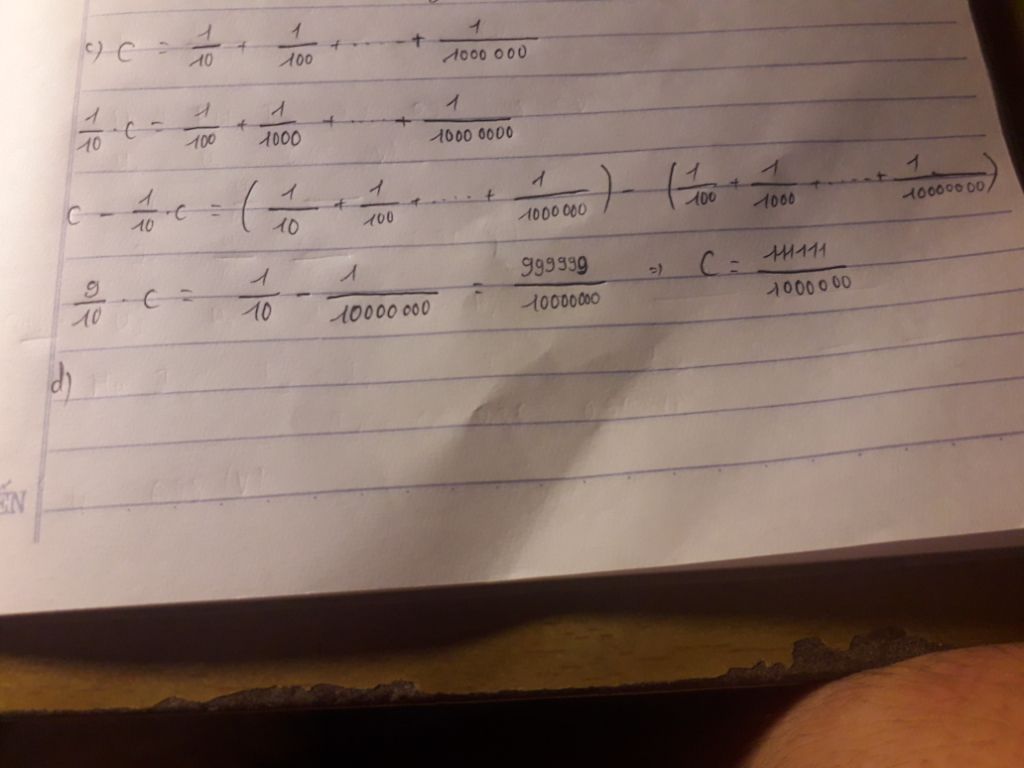 c) C = 1/10 + 1/100 + ..... + 1/1000 000
1/10 . C = 1/100 + 1/1000 + ..... + 1/1000 0000
C - 1/10 . C = ( 1/10 + 1/100 + ..... + 1/1000 000 ) - ( 1/100 + 1/1000 + ..... + 1/10000000 )
9/10 . C = 1/10 - 1/10000 000 = 999999/10000000 => C = 111111/1000000
d)
ẾN